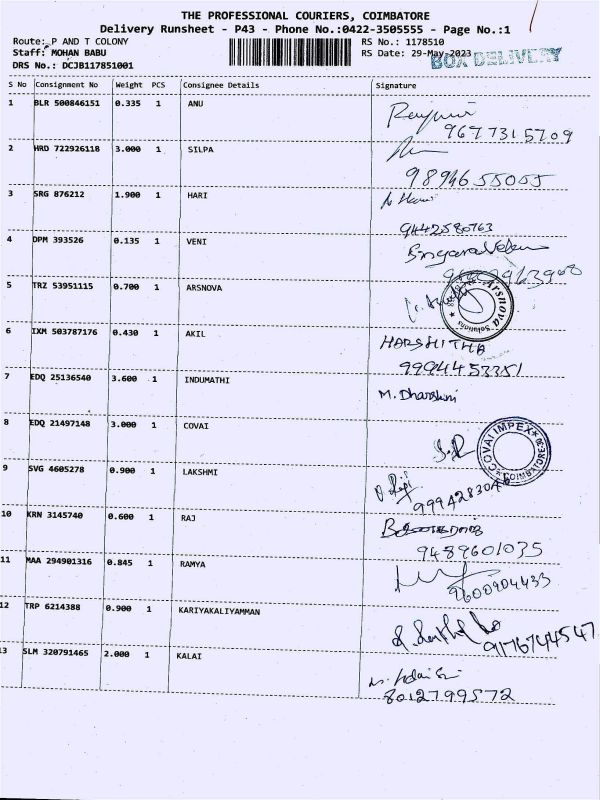 THE PROFESSIONAL COURIERS, COIMBATORE
Delivery Runsheet - P43 - Phone No.:0422-3505555 - Page No.:1
Route: P AND T COLONY
RS No.: 1178510
Staff: MOHAN BABU
RS Date: 29-May-2023
BOX DELIVERY
DRS No.: DCJB117851001
S No Consignment No Weight PCS Consignee Details Signature
1 BLR 500846151 0.335 1 ANU
9677315709
2 HRD 722926118 3.000 1 SILPA
9894655055
3 SRG 876212 1.900 1 HARI
9442580763
4 DPM 393526 0.135 1 VENI
5 TRZ 53951115 0.700 1 ARSNOVA
Arsnova Solutions
6 IXM 503787176 0.430 1 AKIL
HARSHITHA
9994453351
7 EDQ 25136540 3.600 1 INDUMATHI
M. Dharshini
8 EDQ 21497148 3.000 1 COVAI
COVAI IMPEX
9 SVG 4605278 0.900 1 LAKSHMI
10 KRN 3145740 0.600 1 RAJ
9489601035
11 MAA 294901316 0.845 1 RAMYA
9600904433
12 TRP 6214388 0.900 1 KARIYAKALIYAMMAN
9176744547
13 SLM 320791465 2.000 1 KALAI
8012799572